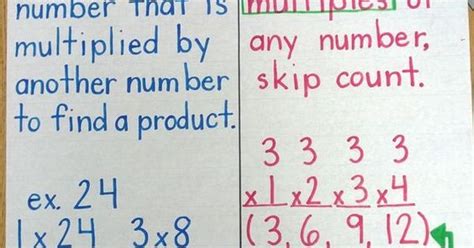 number that is
multiplied by
another number
to find a product.
ex. 24
1 x 24 3 x 8
multiples of
any number,
skip count.
3 3 3 3
x1 x2 x3 x4
(3, 6, 9, 12)